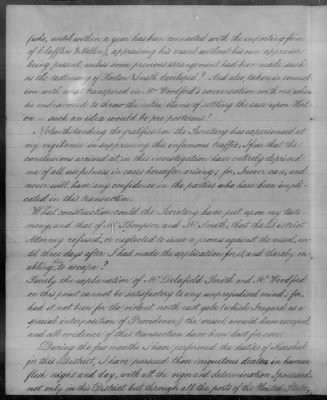 (who, until within a year has been connected with the importing firm
of Claflin & Mellin), appraising his vessel without his own appraiser
being present, unless some previous arrangement had been made, such
as the testimony of Horton & Smith developed? And also, taken in connec-
tion with what transpired in Mr Woodford's conversation with me, when
he endeavored to throw the entire blame of settling the case upon Hort-
on — such an idea would be preposterous!
Notwithstanding the gratification the Secretary has expressed at
my vigilance in suppressing this infamous traffic, I fear that the
conclusions arrived at in this investigation have entirely deprived
me of all usefulness in cases hereafter arising; for, I never can, and
never will have any confidence in the parties who have been impli-
cated in this transaction.
What construction could the Secretary have put upon my testi-
mony, and that of Mr Thompson and Mr Smith, that the District
Attorney refused, or neglected to issue a process against the vessel, un-
til three days after I had made the application for it, and thereby en-
abling her to escape?
Surely the explanation of Mr Delafield Smith and Mr Woodford
on this point cannot be satisfactory to any unprejudiced mind, for,
had it not been for the violent north east gale (which I regard as a
special interposition of Providence,) the vessel would have escaped
and all evidence of this transaction have been lost forever.
During the few months I have performed the duties of Marshal
for this District, I have pursued these iniquitous dealers in human
flesh night and day, with all the vigor and determination I possessed,
not only in this District but through all the ports of the United States,